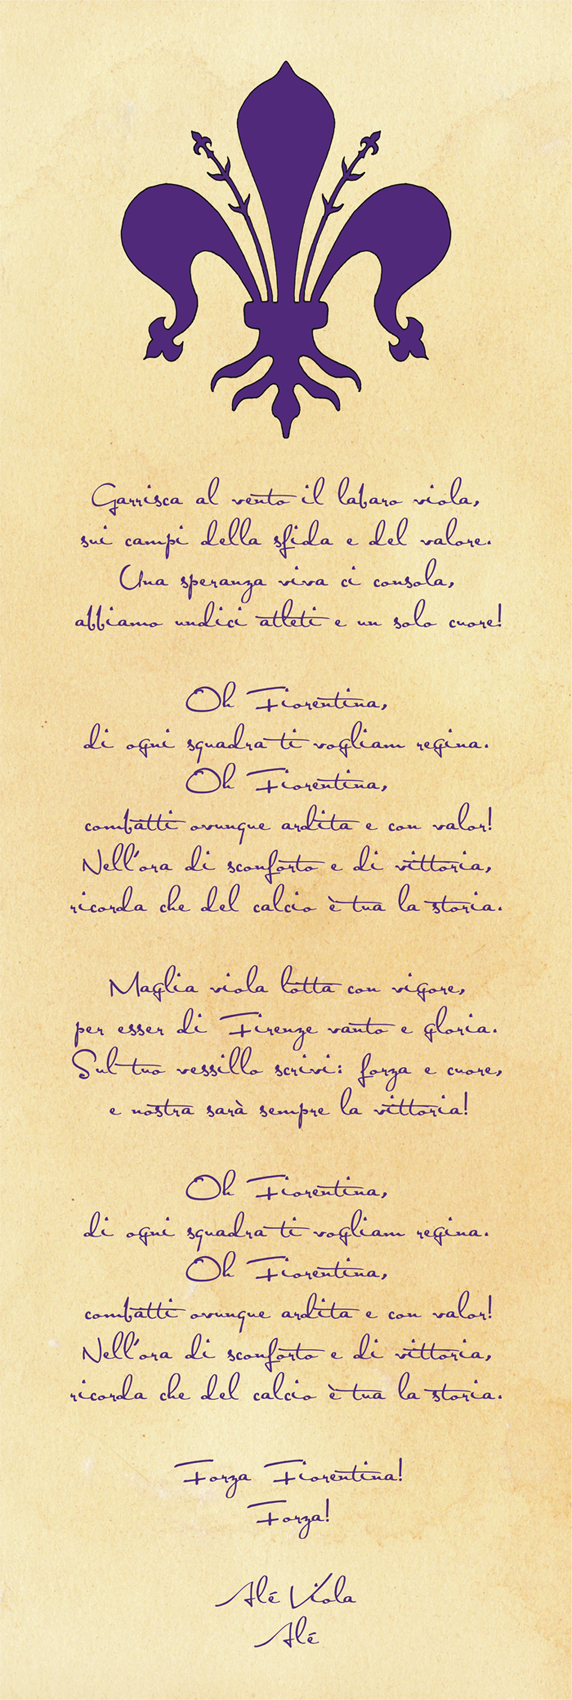 Garrisca al vento il labaro viola,
sui campi della sfida e del valore.
Una speranza viva ci consola,
abbiamo undici atleti e un solo cuore!
Oh Fiorentina,
di ogni squadra ti vogliam regina.
Oh Fiorentina,
combatti ovunque ardita e con valor!
Nell'ora di sconforto e di vittoria,
ricorda che del calcio è tua la storia.
Maglia viola lotta con vigore,
per esser di Firenze vanto e gloria.
Sul tuo vessillo scrivi: forza e cuore,
e nostra sarà sempre la vittoria!
Oh Fiorentina,
di ogni squadra ti vogliam regina.
Oh Fiorentina,
combatti ovunque ardita e con valor!
Nell'ora di sconforto e di vittoria,
ricorda che del calcio è tua la storia.
Forza Fiorentina!
Forza!
Alé Viola
Alé